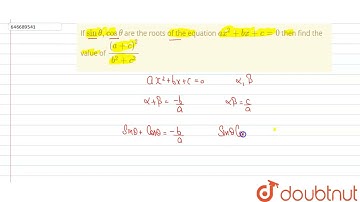 646689543
If sin θ, cos θ are the roots of the equation ax² + bx + c = 0 then find the
value of (a + c)² / (b² + c²)
ax² + bx + c = 0    α, β
α + β = -b/a    αβ = c/a
Sinθ + Cosθ = -b/a    Sinθ Co
doubtnut